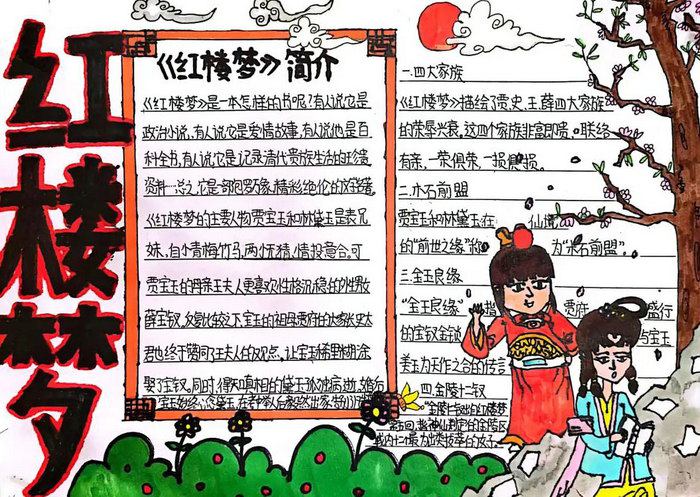 红楼梦
《红楼梦》简介
《红楼梦》是一本怎样的书呢?有人说它是
政治小说,有人说它是爱情故事,有人说他是百
科全书,有人说它是记录清代贵族生活的珍贵
资料…总之,它是一部包罗万象,精彩绝伦的文学名著。
《红楼梦》的主要人物贾宝玉和林黛玉是表兄
妹,自小青梅竹马,两小无猜,情投意合。可
贾宝玉的母亲王夫人更喜欢性格沉稳的
薛宝钗,反复比较下,宝玉的祖母贾府的大家长史太
君也终于赞同王夫人的观点。让宝玉稀里糊涂
娶了宝钗,同时,得知真相的黛玉孤独病逝,婚后
宝玉始终
一.四大家族
《红楼梦》描绘了贾、史、王、薛四大家族
的荣辱兴衰,这四个家族非富即贵。联络
有亲,一荣俱荣,一损俱损。
二.木石前盟
贾宝玉和林黛玉在 仙境
的“前世之缘”称 为“木石前盟”。
三.金玉良缘
“金玉良缘”指 贾府 盛行
的宝钗金锁 宝玉
美玉为天作之合的传言
四.金陵十二钗
“金陵十二钗”出自红楼梦
第五回,指 金陵
十二 最为出类拔萃的女子…